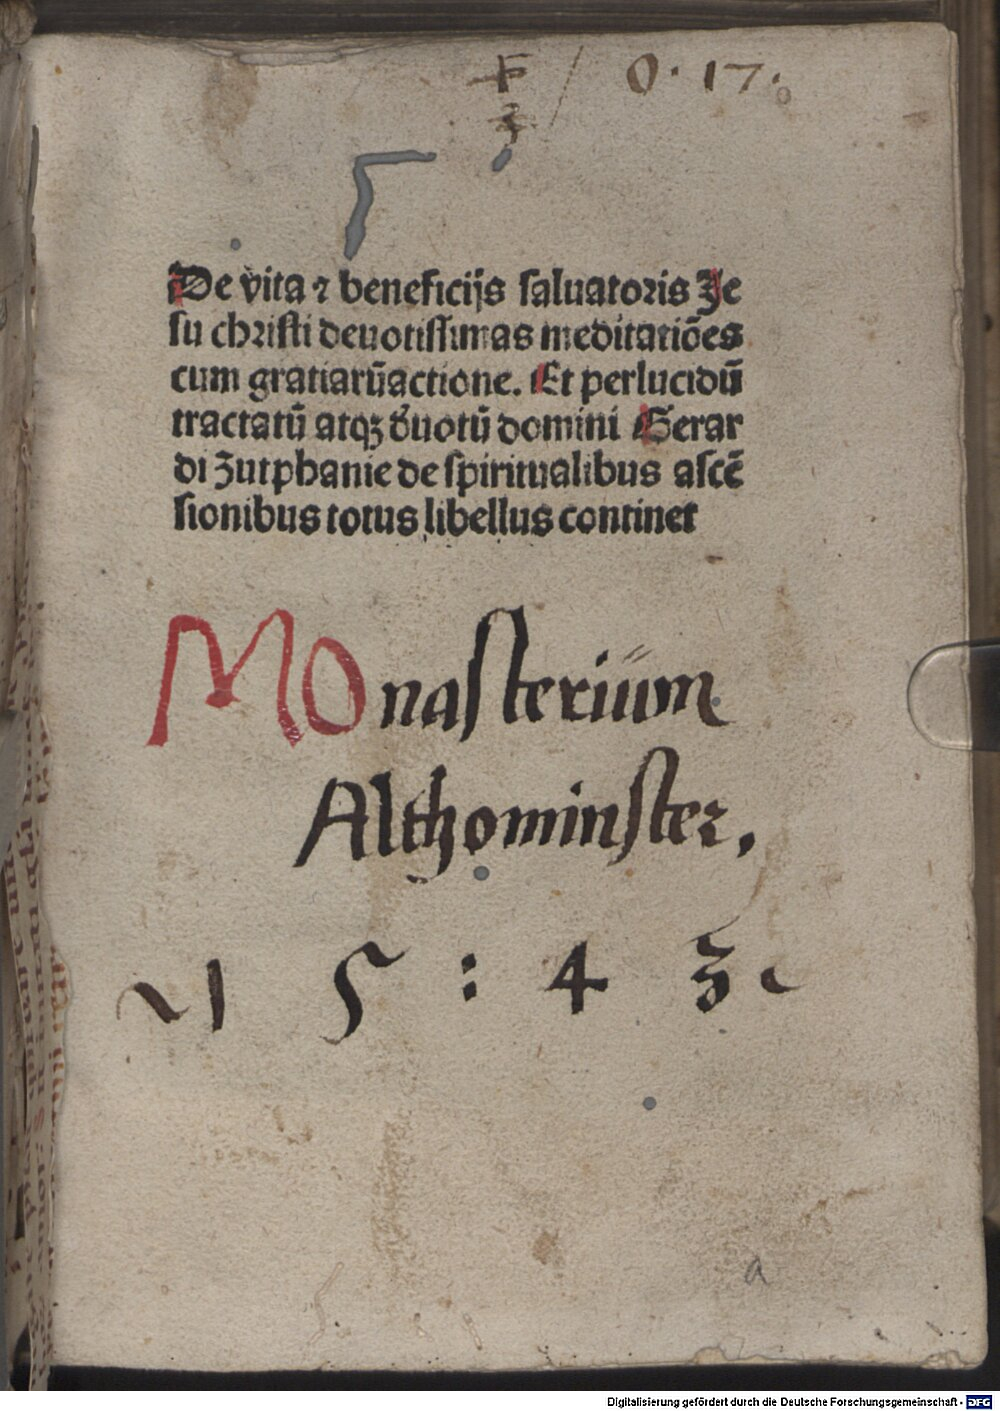 O. 17.
De vita ⁊ beneficijs ſaluatoris Je
ſu chriſti deuotiſſimas meditatiões
cum gratiarūactione. Et perlucidū
tractatū atqꝫ d̓uotū domini Gerar
di Zutphanie de ſpiritualibus aſcē
ſionibus totus libellus continet
Monaſterium
Althominſter.
15:43
a
Digitalisierung gefördert durch die Deutsche Forschungsgemeinschaft - DFG